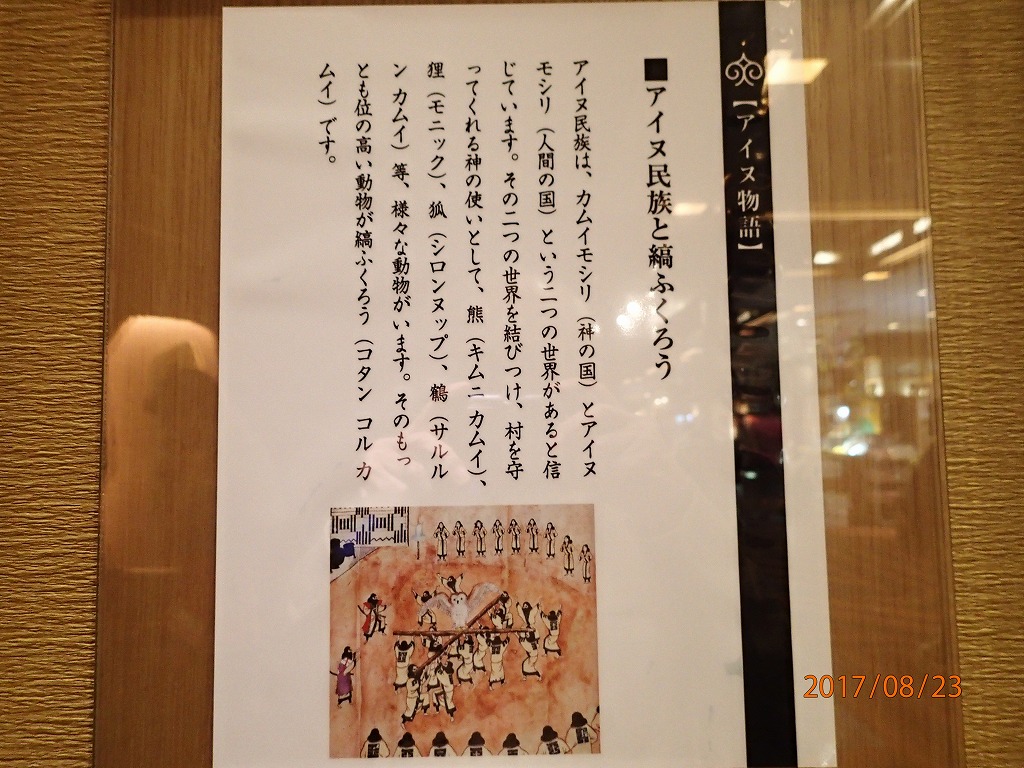 【アイヌ物語】
■アイヌ民族と縞ふくろう
アイヌ民族は、カムイモシリ（神の国）とアイヌ
モシリ（人間の国）という二つの世界があると信
じています。その二つの世界を結びつけ、村を守
ってくれる神の使いとして、熊（キムニ カムイ）、
狸（モニック）、狐（シロンヌップ）、鶴（サルル
ン カムイ）等、様々な動物がいます。そのもっ
とも位の高い動物が縞ふくろう（コタン コル カ
ムイ）です。
2017/08/23